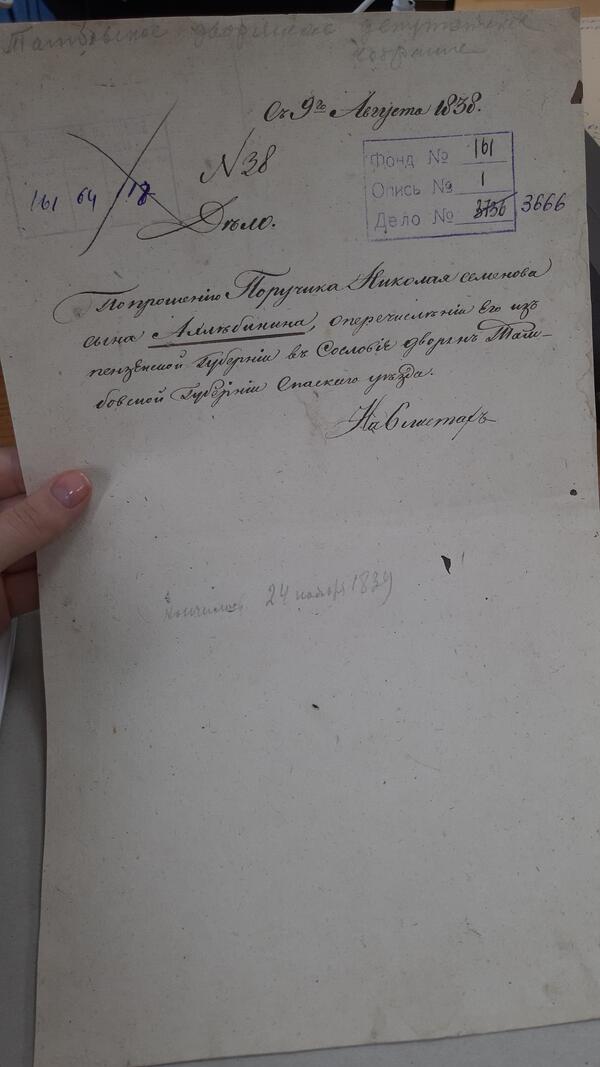 Тамбовское дворянское депутатское
собрание
Съ 9го Августа 1838.
N 38
161 64 18
Фонд № 161
Опись № 1
Дело № 3736 3666
Дѣло.
По прошенію Поручика Николая семенова
сына Аллѣбинина, оперечисленіи Его изъ
пензенской Губерніи въ Сословіе дворянъ Там-
бовской Губерніи Спаскаго уѣзда.
На 6 листахъ
Кончилось 24 ноября 1839